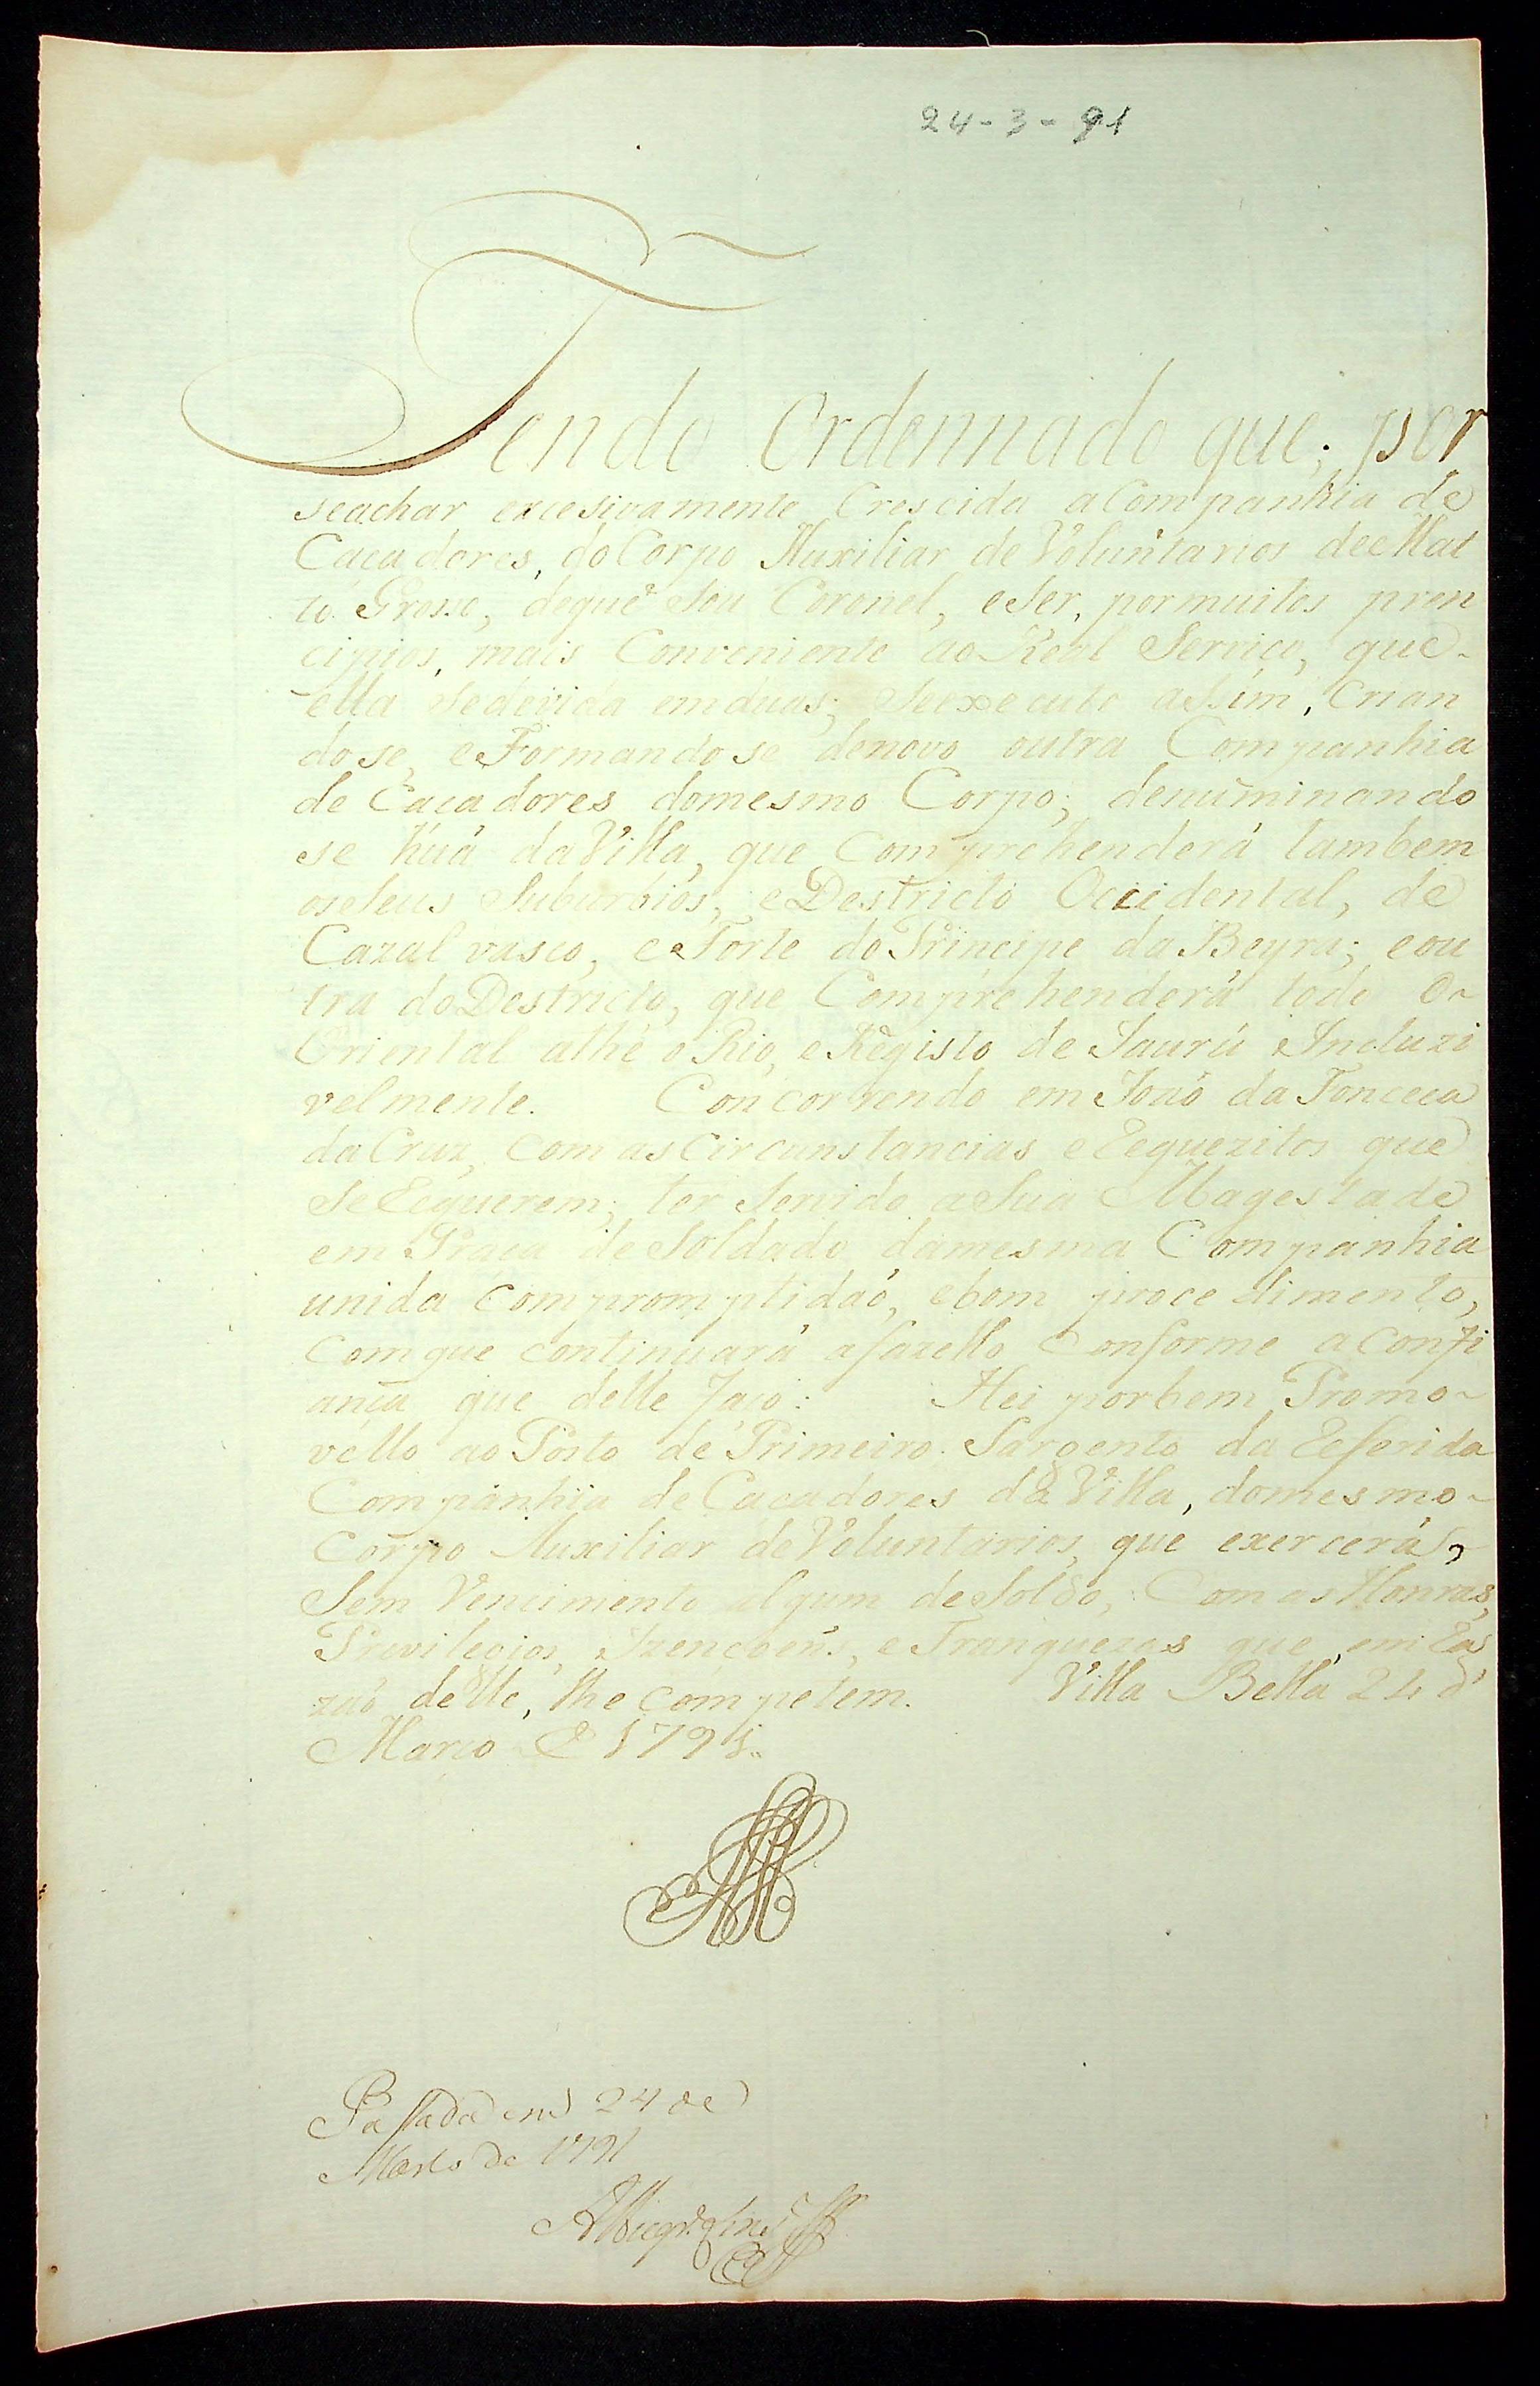 24-3-91
Tendo Ordennado que; por
seachar excesivamente Crescida aCompanhia de
Caçadores, do Corpo Auxiliar de Voluntarios deMat
to Grosso, deque Sou Coronel, eSer, pormuitos pren
cipios, mais Conveniente ao Real Serviço, que-
ella Sedevida emduas; Seexecute aSsim, Crian
dose, eFormandose denovo outra Companhia
de Caçadores domesmo Corpo; denuminando
se húa daVilla, que Comprehenderá tambem
osSeus Suburbios, eDestricto Occidental, de
Cazal vasco, eForte do Principe da Beyra; eou
tra doDestricto, que Comprehenderá todo O-
Oriental athé o Rio, eRegisto de Jaurú Incluzi
velmente. Concorrendo em Joaõ da Fonceca
daCruz, Com as Circunstancias eRequezitos que
SeRequerem; ter Servido aSua Magestade
em Praça deSoldado damesma Companhia
unida Compromptidaõ, ebom procedimento,
Comque continuará afazello Conforme aConfi
ança que delle faço: Hei porbem Promo-
vello ao Posto de Primeiro Sargento da Referida
Companhia deCaçadores da Villa, domesmo-
Corpo Auxiliar deVoluntarios, que exercerá,
Sem Vencimento algum deSoldo, Com as Honras,
Previlegios, Izençoens, e Franquezas que, em Ra
zaõ delle, lhe competem. Villa Bella 24 d'
Março de 1791.
Passada em 24 de
Março de 1791